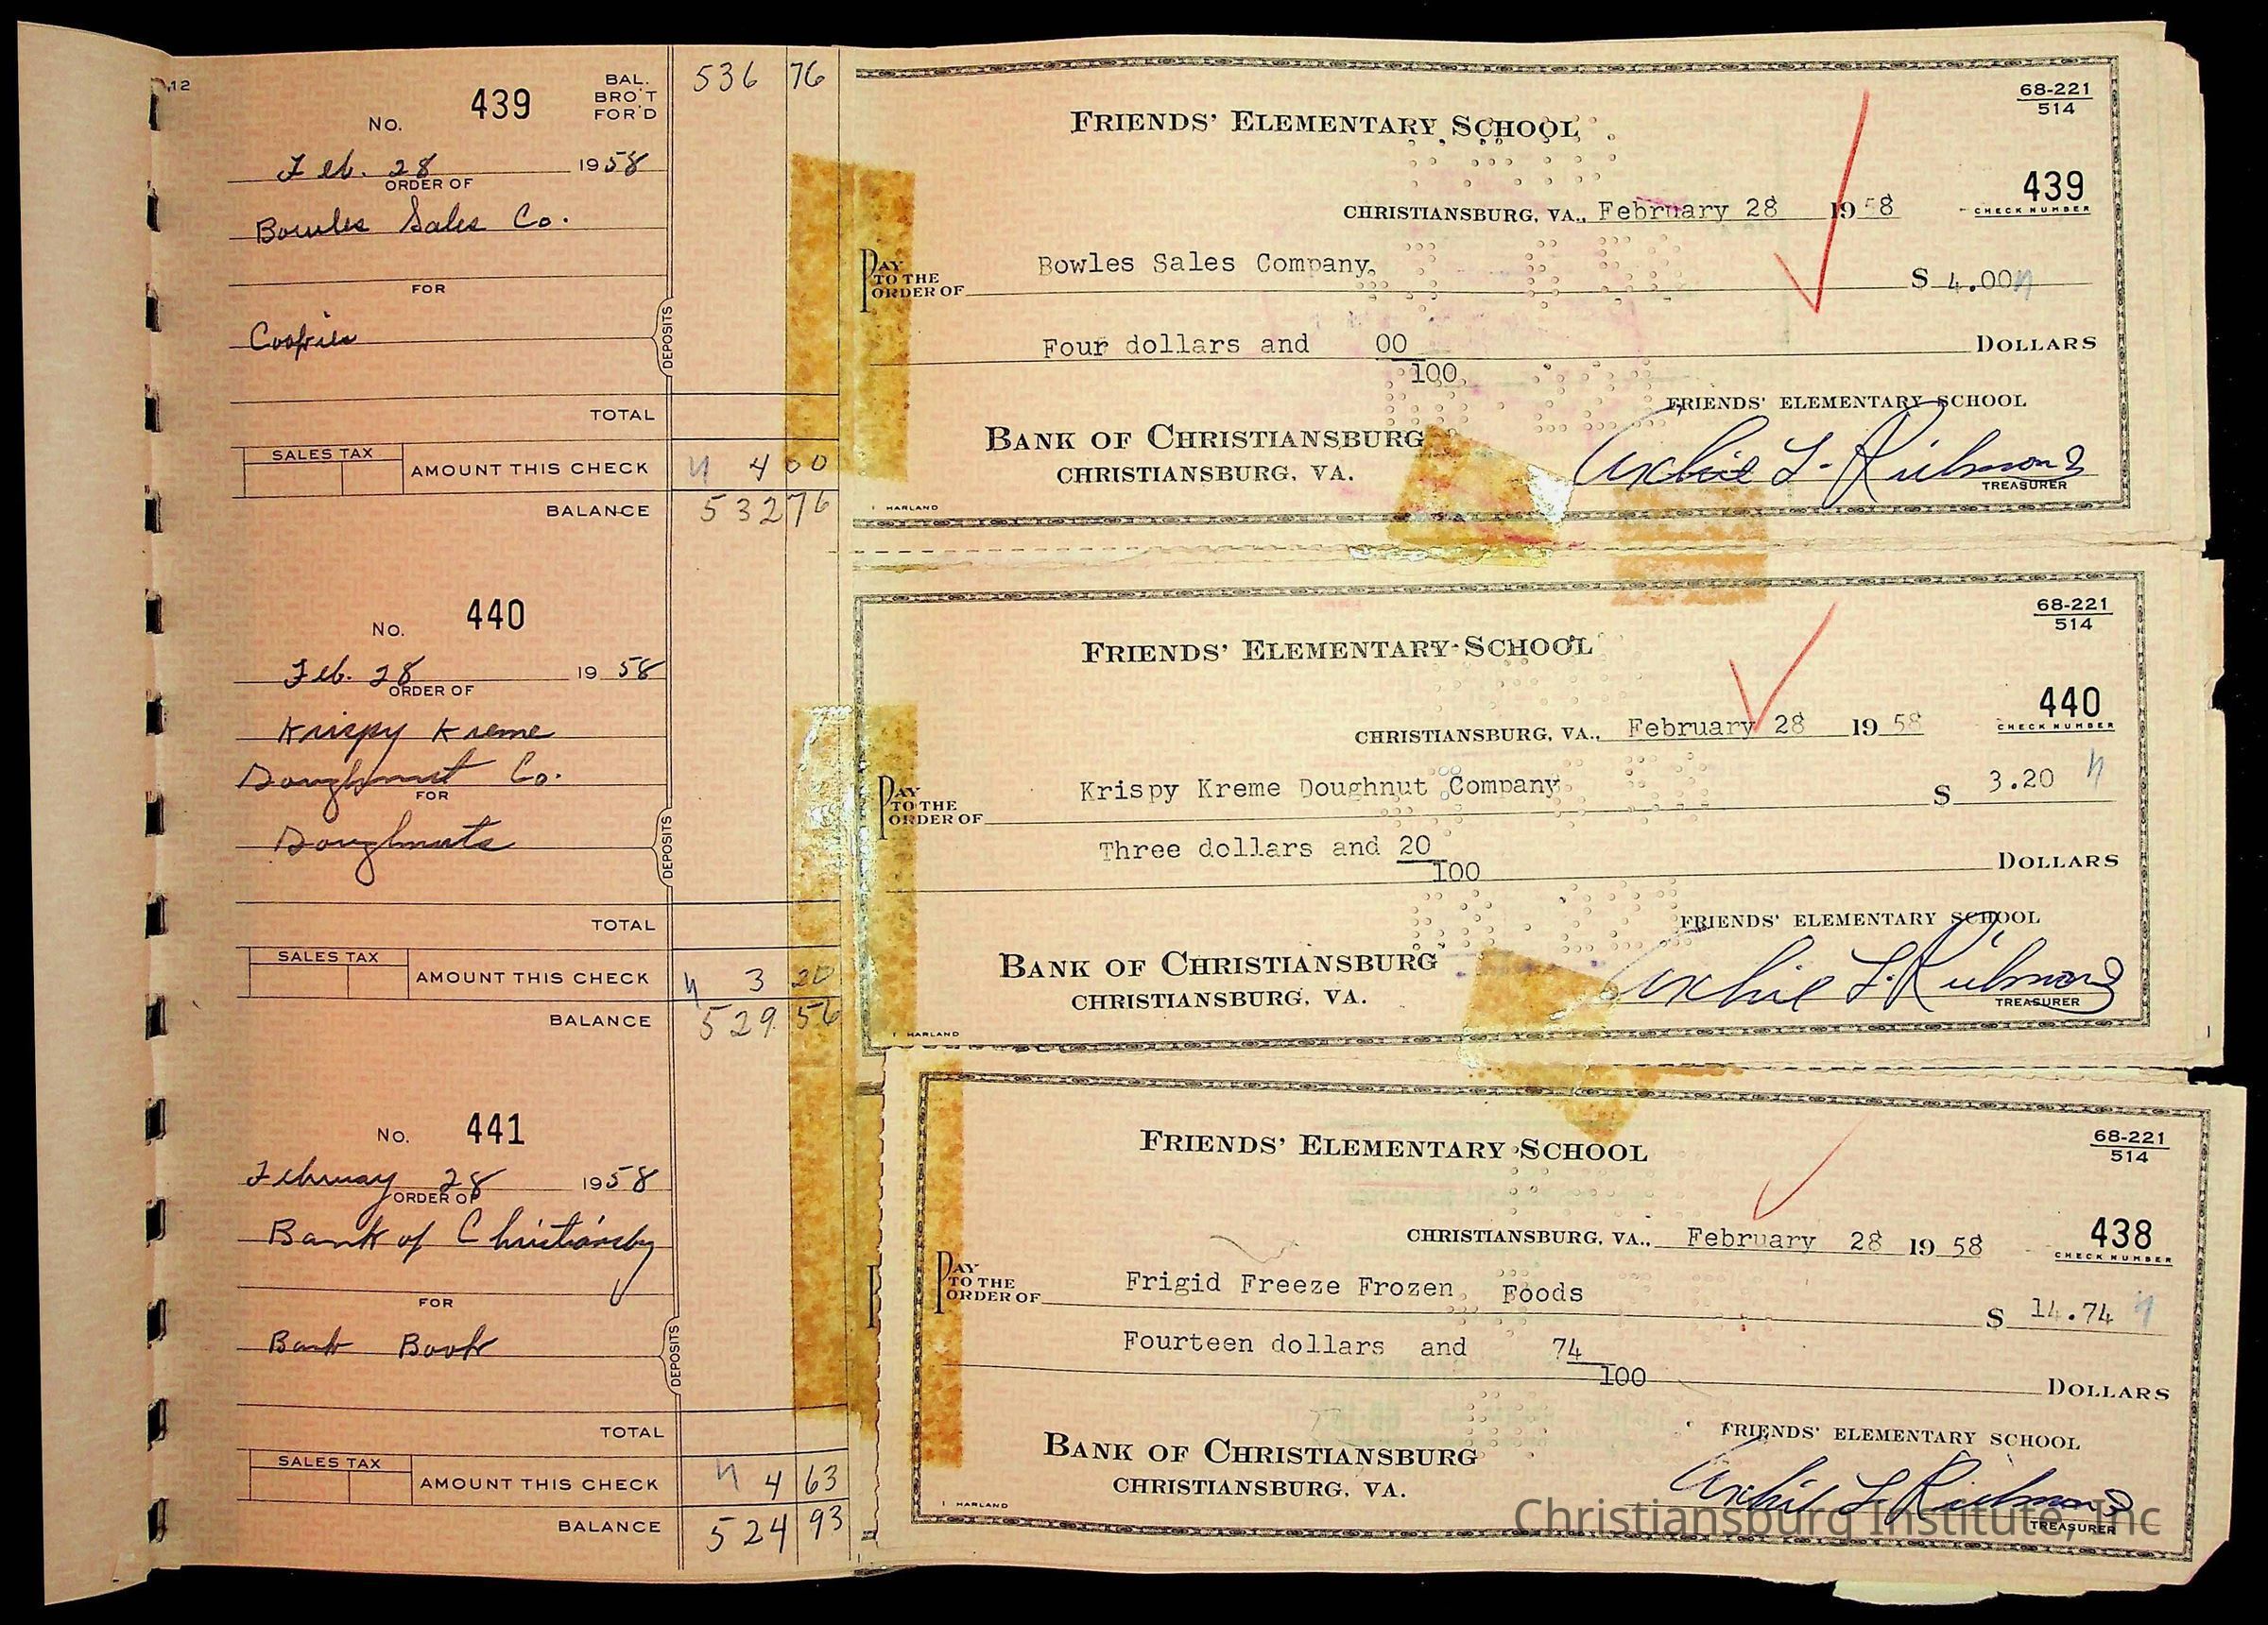 12
No. 439
BAL. BRO'T FOR'D 536 76
Feb. 28 1958
ORDER OF
Bowles Sales Co.
FOR
Cookies
DEPOSITS
TOTAL
SALES TAX
AMOUNT THIS CHECK 4 00
BALANCE 532 76
No. 440
Feb. 28 1958
ORDER OF
Krispy Kreme
Doughnut Co.
FOR
Doughnuts
DEPOSITS
TOTAL
SALES TAX
AMOUNT THIS CHECK 3 20
BALANCE 529 56
No. 441
February 28 1958
ORDER OF
Bank of Christiansbg
FOR
Bank Book
DEPOSITS
TOTAL
SALES TAX
AMOUNT THIS CHECK 4 63
BALANCE 524 93
68-221
514
FRIENDS' ELEMENTARY SCHOOL
439
CHECK NUMBER
CHRISTIANSBURG, VA., February 28 1958
PAY TO THE ORDER OF Bowles Sales Company $ 4.00
Four dollars and 00
100 DOLLARS
FRIENDS' ELEMENTARY SCHOOL
BANK OF CHRISTIANSBURG
CHRISTIANSBURG, VA.
Archie L. Richmond
TREASURER
HARLAND
68-221
514
FRIENDS' ELEMENTARY SCHOOL
440
CHECK NUMBER
CHRISTIANSBURG, VA., February 28 1958
PAY TO THE ORDER OF Krispy Kreme Doughnut Company $ 3.20
Three dollars and 20
100 DOLLARS
FRIENDS' ELEMENTARY SCHOOL
BANK OF CHRISTIANSBURG
CHRISTIANSBURG, VA.
Archie L. Richmond
TREASURER
HARLAND
68-221
514
FRIENDS' ELEMENTARY SCHOOL
438
CHECK NUMBER
CHRISTIANSBURG, VA., February 28 1958
PAY TO THE ORDER OF Frigid Freeze Frozen Foods $ 14.74
Fourteen dollars and 74
100 DOLLARS
FRIENDS' ELEMENTARY SCHOOL
BANK OF CHRISTIANSBURG
CHRISTIANSBURG, VA.
Archie L. Richmond
TREASURER
HARLAND
Christiansburg Institute, Inc